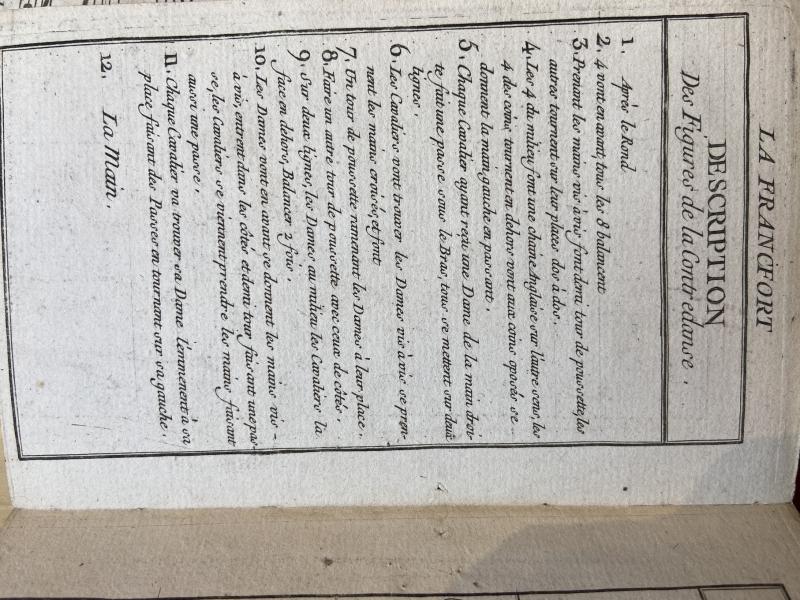 LA FRANCFORT
DESCRIPTION
Des Figures de la Contredanse.
1. Après le Rond
2. 4 vont en avant, tous les 8 balancent
3. Prenant les mains vis à vis font demi tour de poussette, les
autres tournent sur leur places dos à dos.
4. Les 4 du milieu font une chaine Anglaise sur l'autre sens, les
4 des coins, tournent en dehors vont aux coins oposés se
donnent la main gauche en passant.
5. Chaque Cavalier ayant reçu une Dame de la main droi-
te fait une passe sous le Bras, tous se mettent sur deux
lignes.
6. Les Cavaliers vont trouver les Dames vis à vis se pren-
nent les mains croisés, et font
7. Un tour de poussette ramenant les Dames à leur place.
8. Faire un autre tour de poussette avec ceux de côtés.
9. Sur deux lignes, les Dames au milieu les Cavaliers la
face en dehors, Balancer 2 fois.
10. Les Dames vont en avant se donnent les mains vis-
à vis, entrent dans les côtés et demi tour faisant une pas-
se, les Cavaliers se viennent prendre les mains faisant
aussi une passe.
11. Chaque Cavalier va trouver sa Dame l'emmenent à sa
place faisant des Passes en tournant sur sa gauche.
12. La Main.